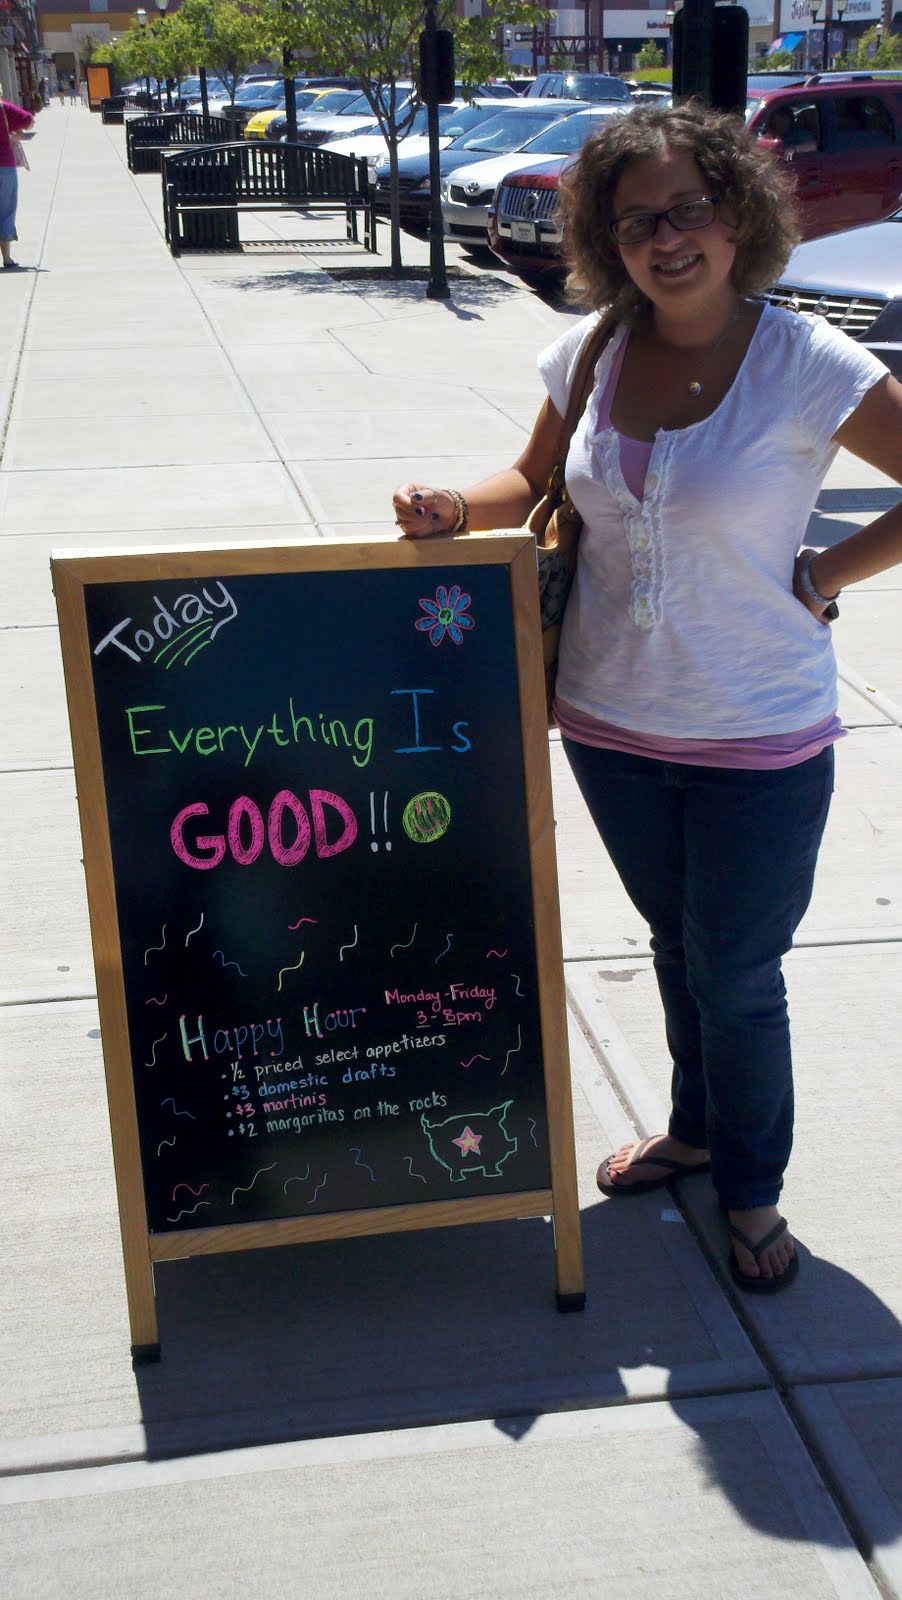 Today
Everything Is
GOOD!!
Happy Hour Monday-Friday
3-8pm
• 1/2 priced select appetizers
• $3 domestic drafts
• $3 martinis
• $2 margaritas on the rocks
SEPHORA